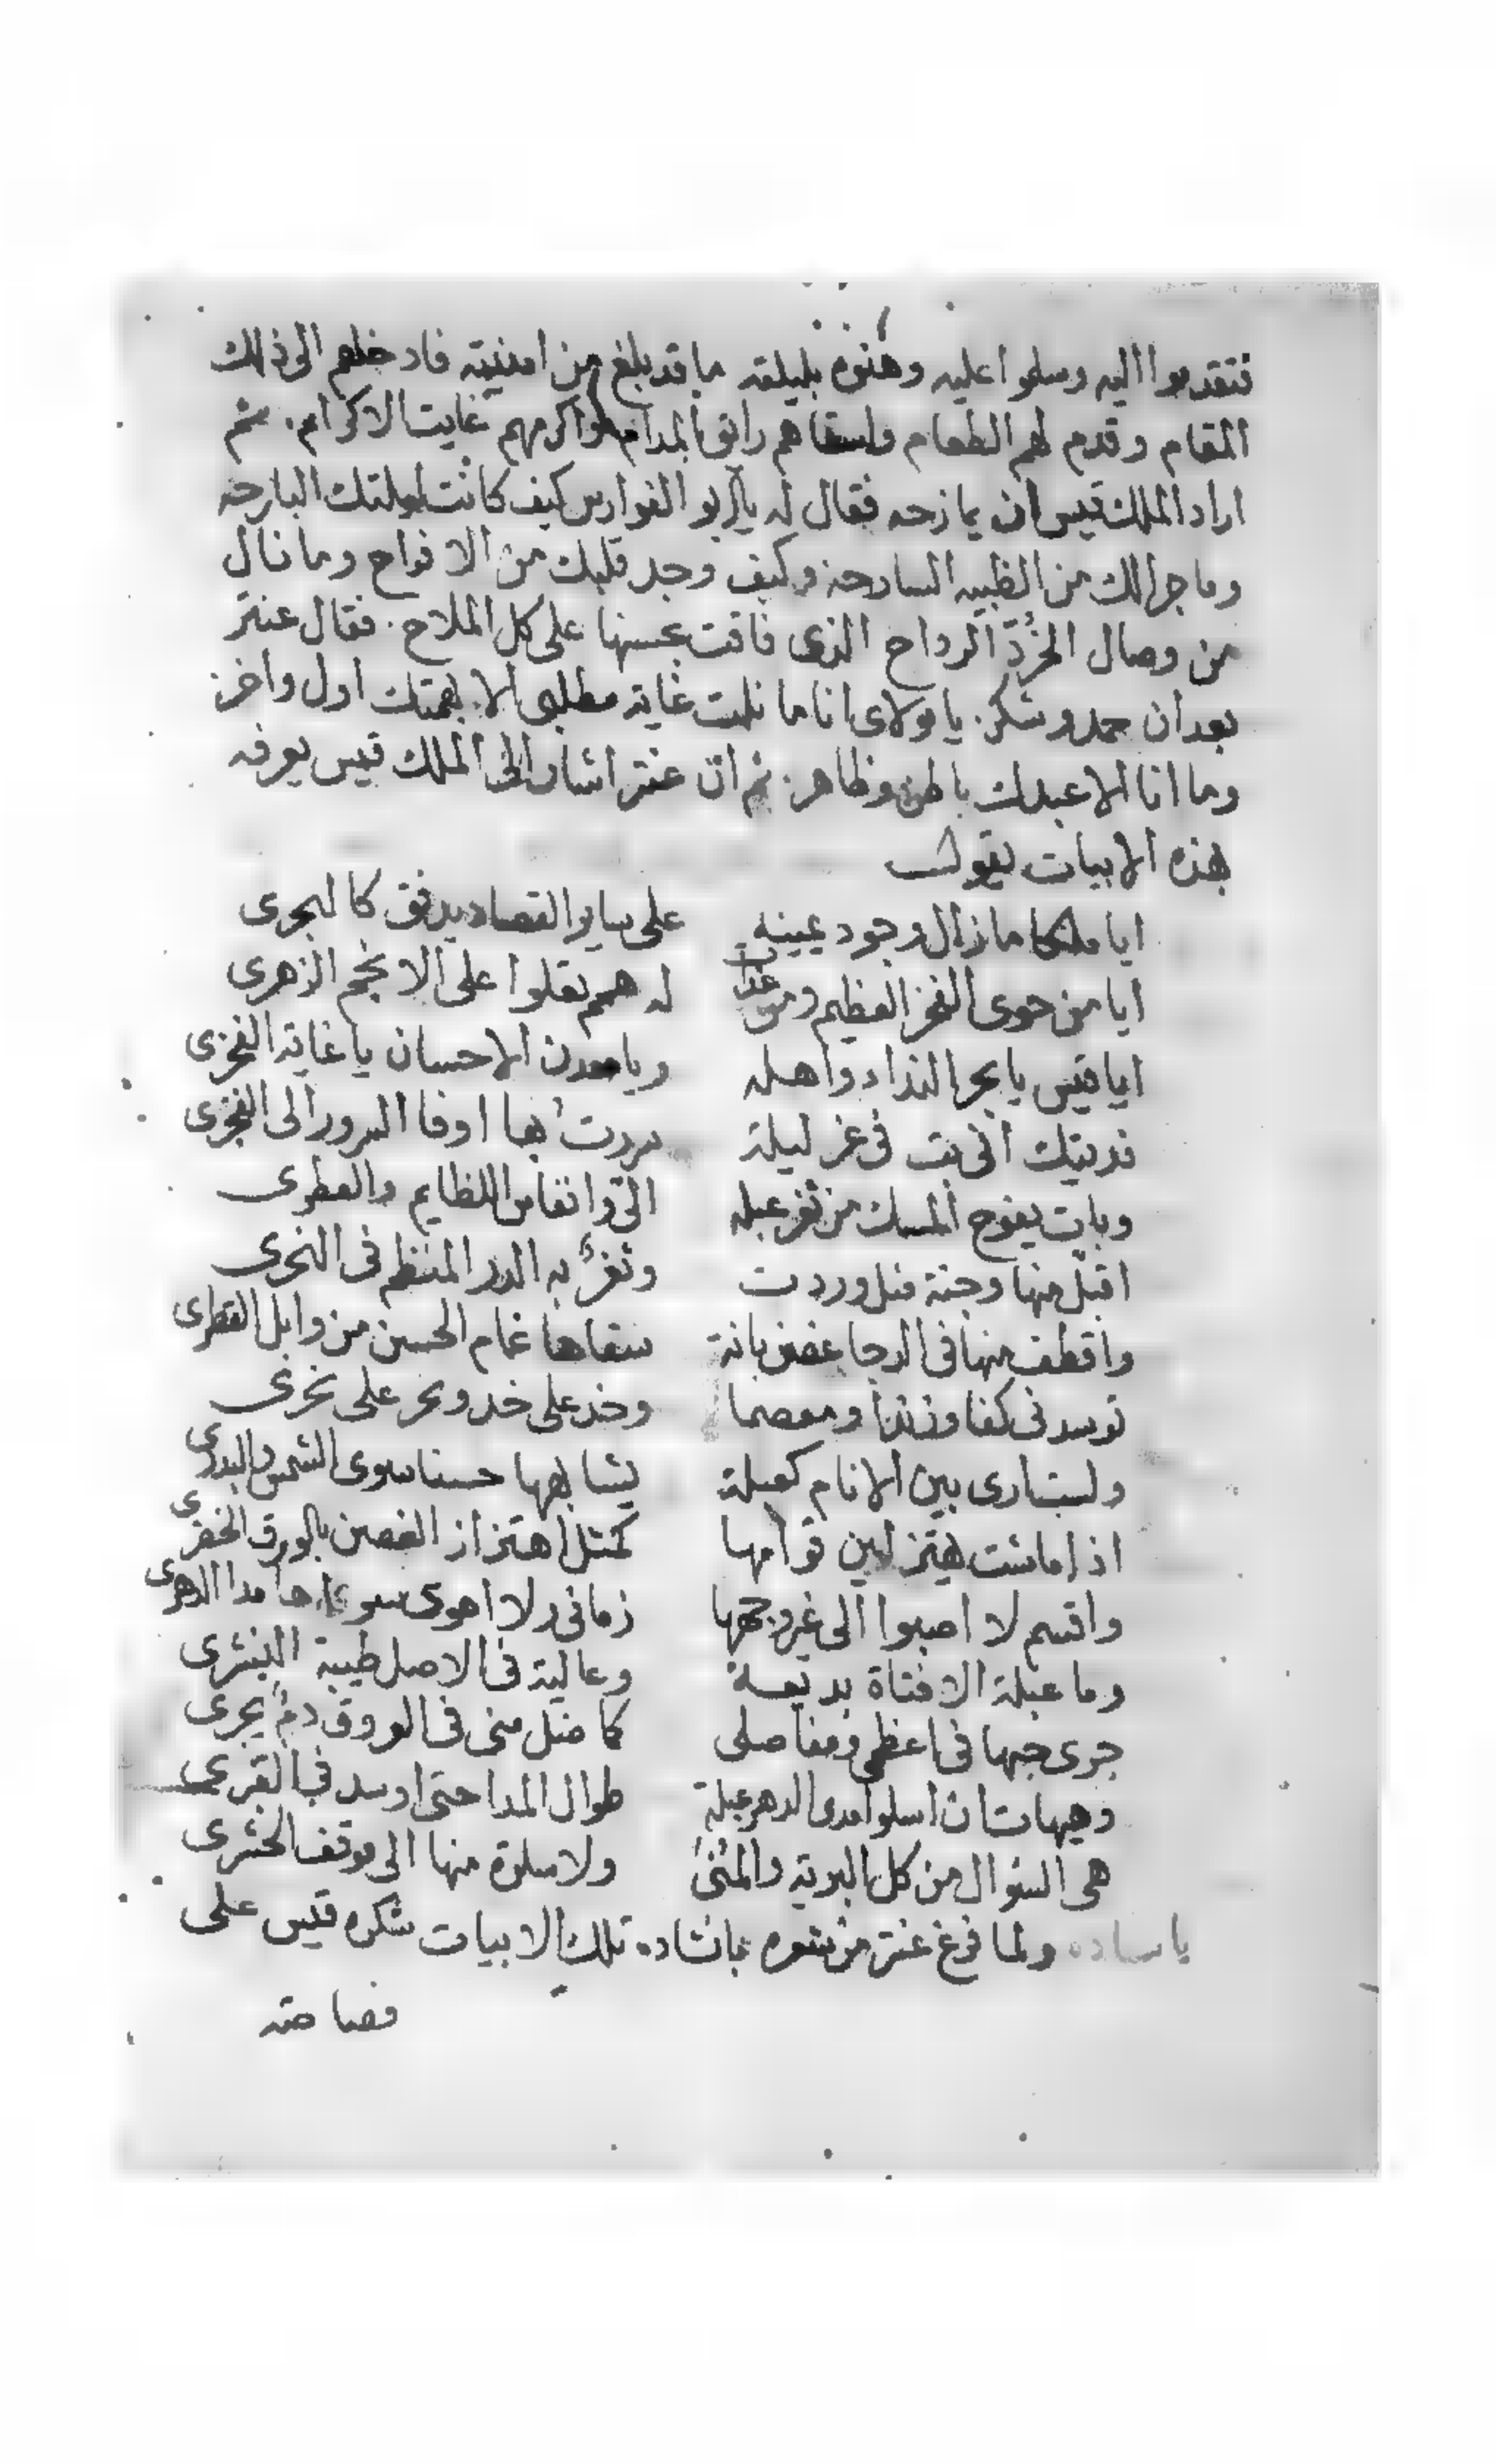 فتقدموا اليه وسلموا عليه وهنوه بليلته ما قد بلغ من امنيته فادخلهم الى ذلك
المقام وقدم لهم الطعام واسقاهم رايق المدام واكرمهم غايت الاكرام. ثم
اراد الملك قيس ان يمازحه فقال له يا ابو الفوارس كيف كانت ليلتك البارحه
وما جرالك من الظبيه السارحة وكيف وجد قلبك من الافراح وما نال
من وصال الخُرّد الرداح الذى فاقت بحسنها على كل الملاح. فقال عنتر
بعد ان حمد وشكر. يا مولاى انا ما نلت غاية مطلبى الا بهمتك اول واخر.
وما انا الا عبدك باطن وظاهر. ثم ان عنتر اشار الى الملك قيس يعرفه
بهذه الابيات يقول
ايا ملكا ما زال وجود يمينه على ساير القصاد يدفق كالبحرى
ايا من حوى الفخر العظيم ومن غدا له همم تعلوا على الانجم الزهرى
ايا قيس يا بحر الندا واهله ويا معدن الاحسان يا غاية الفخرى
فديتك انى بت فى عز ليلة سررت بها اوفا السرور الى الفجرى
وبات يفوح المسك من ثغر عبله الىّ وانفاس اللطايم والعطرى
اقبّل منها وجنة قد وردت وثغرٌ به الدر المنظم فى النحرى
واقطف منها فى الدجا غصن بانة سقاها غمام الحسن من وابل القطرى
توسدنى كفا وزندا ومعصما وخد على خد ونحر على نحرى
ولست ارى بين الانام كعبلة يشابهها حسنا سوى الشمس والبدرى
اذا ما مشت يهتز لين قوامها كمثل اهتزاز الغصن بالورق الخضرى
واقسم لا اصبوا الى غير وجهها زمانى ولا اهوى سواها مدا الدهرى
وما عبلة الا فتاة بديعة وعالية فى الاصل طيبة النشرى
جرى حبها فى اعظمى ومفاصلى كما مثل منى فى العروق دمٌ يجرى
وهيهات ان اسلوا مدى الدهر عبلة طوال المدا حتى اوسد فى القبرى
هى السؤال من كل البرية والمنى ولا سلوة منها الى موقف الحشرى
يا ساده. ولما فرغ عنتر من شعره بانشاده تلك الابيات شكره قيس على
فصاحته